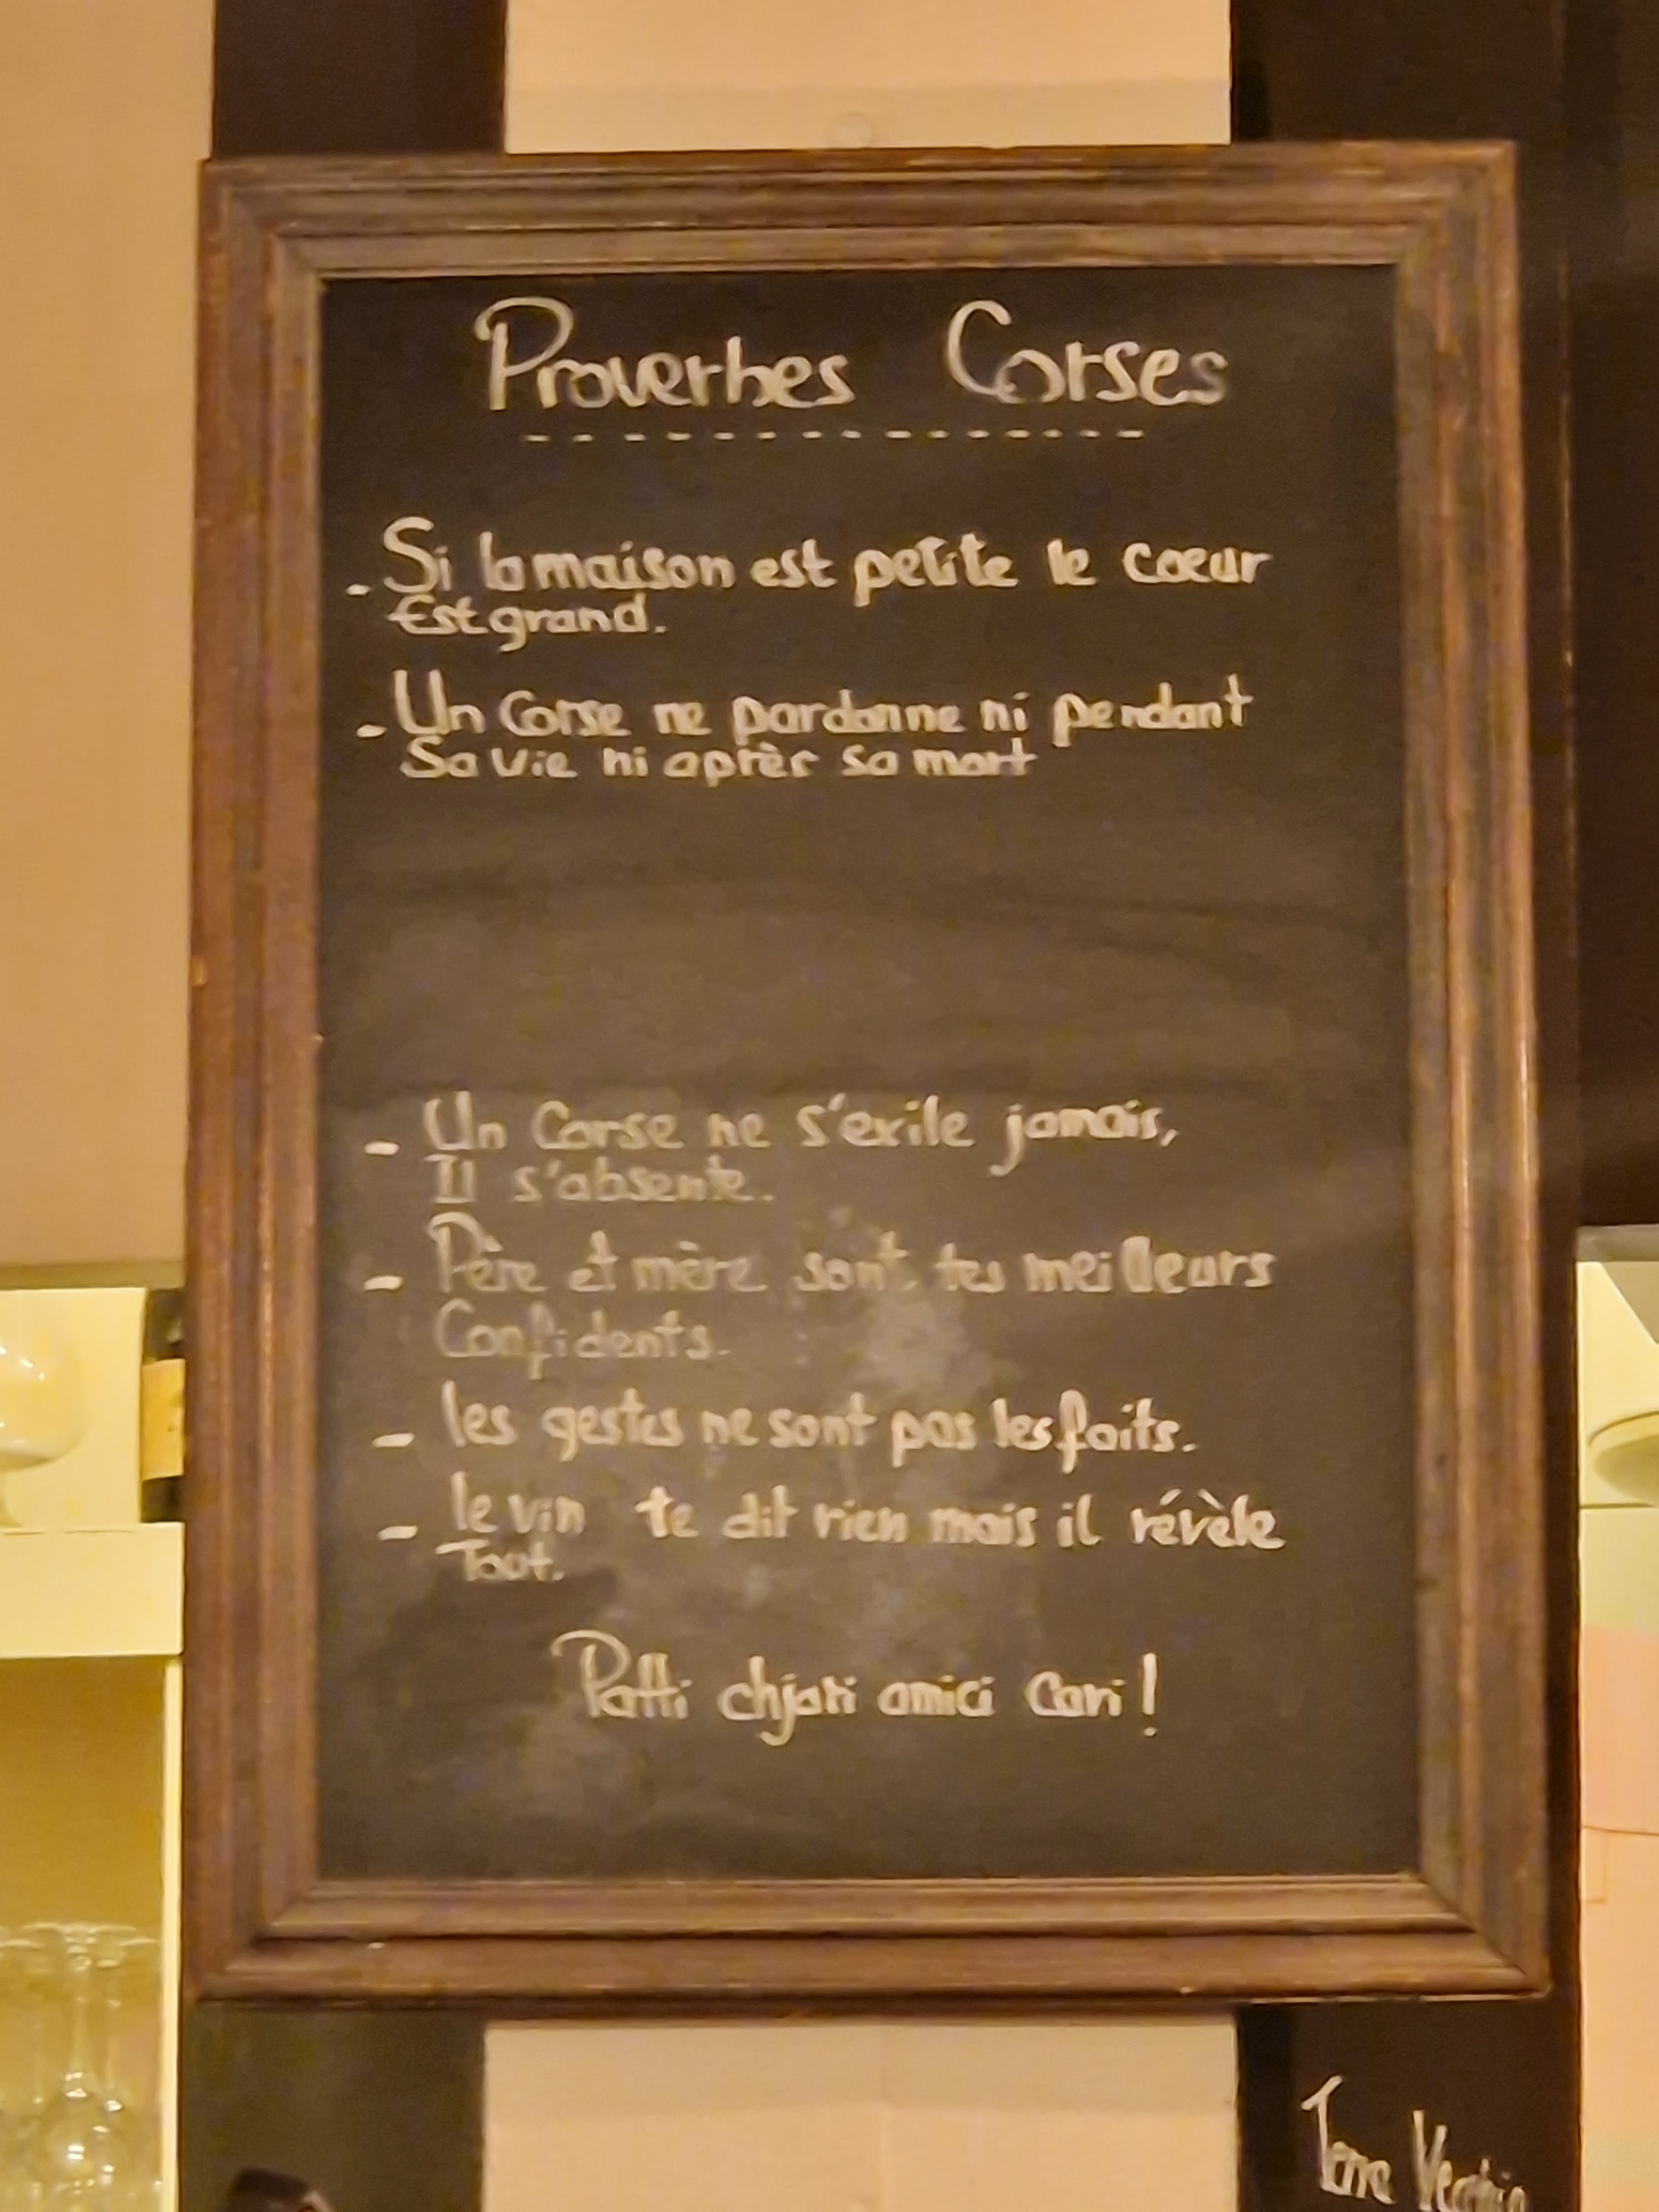 Proverbes Corses
- Si la maison est petite le cœur
Est grand.
- Un Corse ne pardonne ni pendant
Sa vie ni après sa mort
- Un Corse ne s'exile jamais,
Il s'absente.
- Père et mère sont tes meilleurs
Confidents.
- les gestes ne sont pas les faits.
- le vin te dit rien mais il révèle
Tout.
Patti chjari amici cari !
Terra